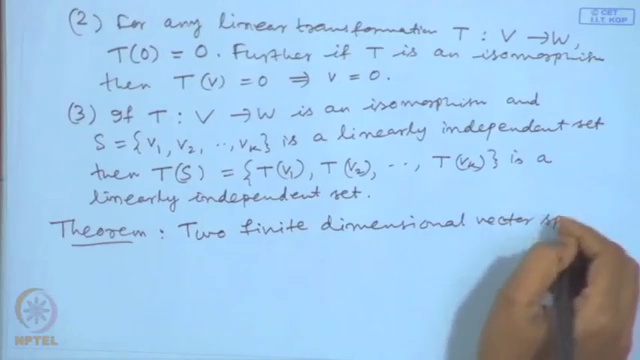 © CET
I.I.T. KGP
(2) For any linear transformation T : V → W,
T(0) = 0. Further if T is an isomorphism
then T(v) = 0 ⇒ v = 0.
(3) If T : V → W is an isomorphism and
S = {v₁, v₂, .., vₖ} is a linearly independent set
then T(S) = {T(v₁), T(v₂), .., T(vₖ)} is a
linearly independent set.
Theorem : Two finite dimensional vector sp
NPTEL